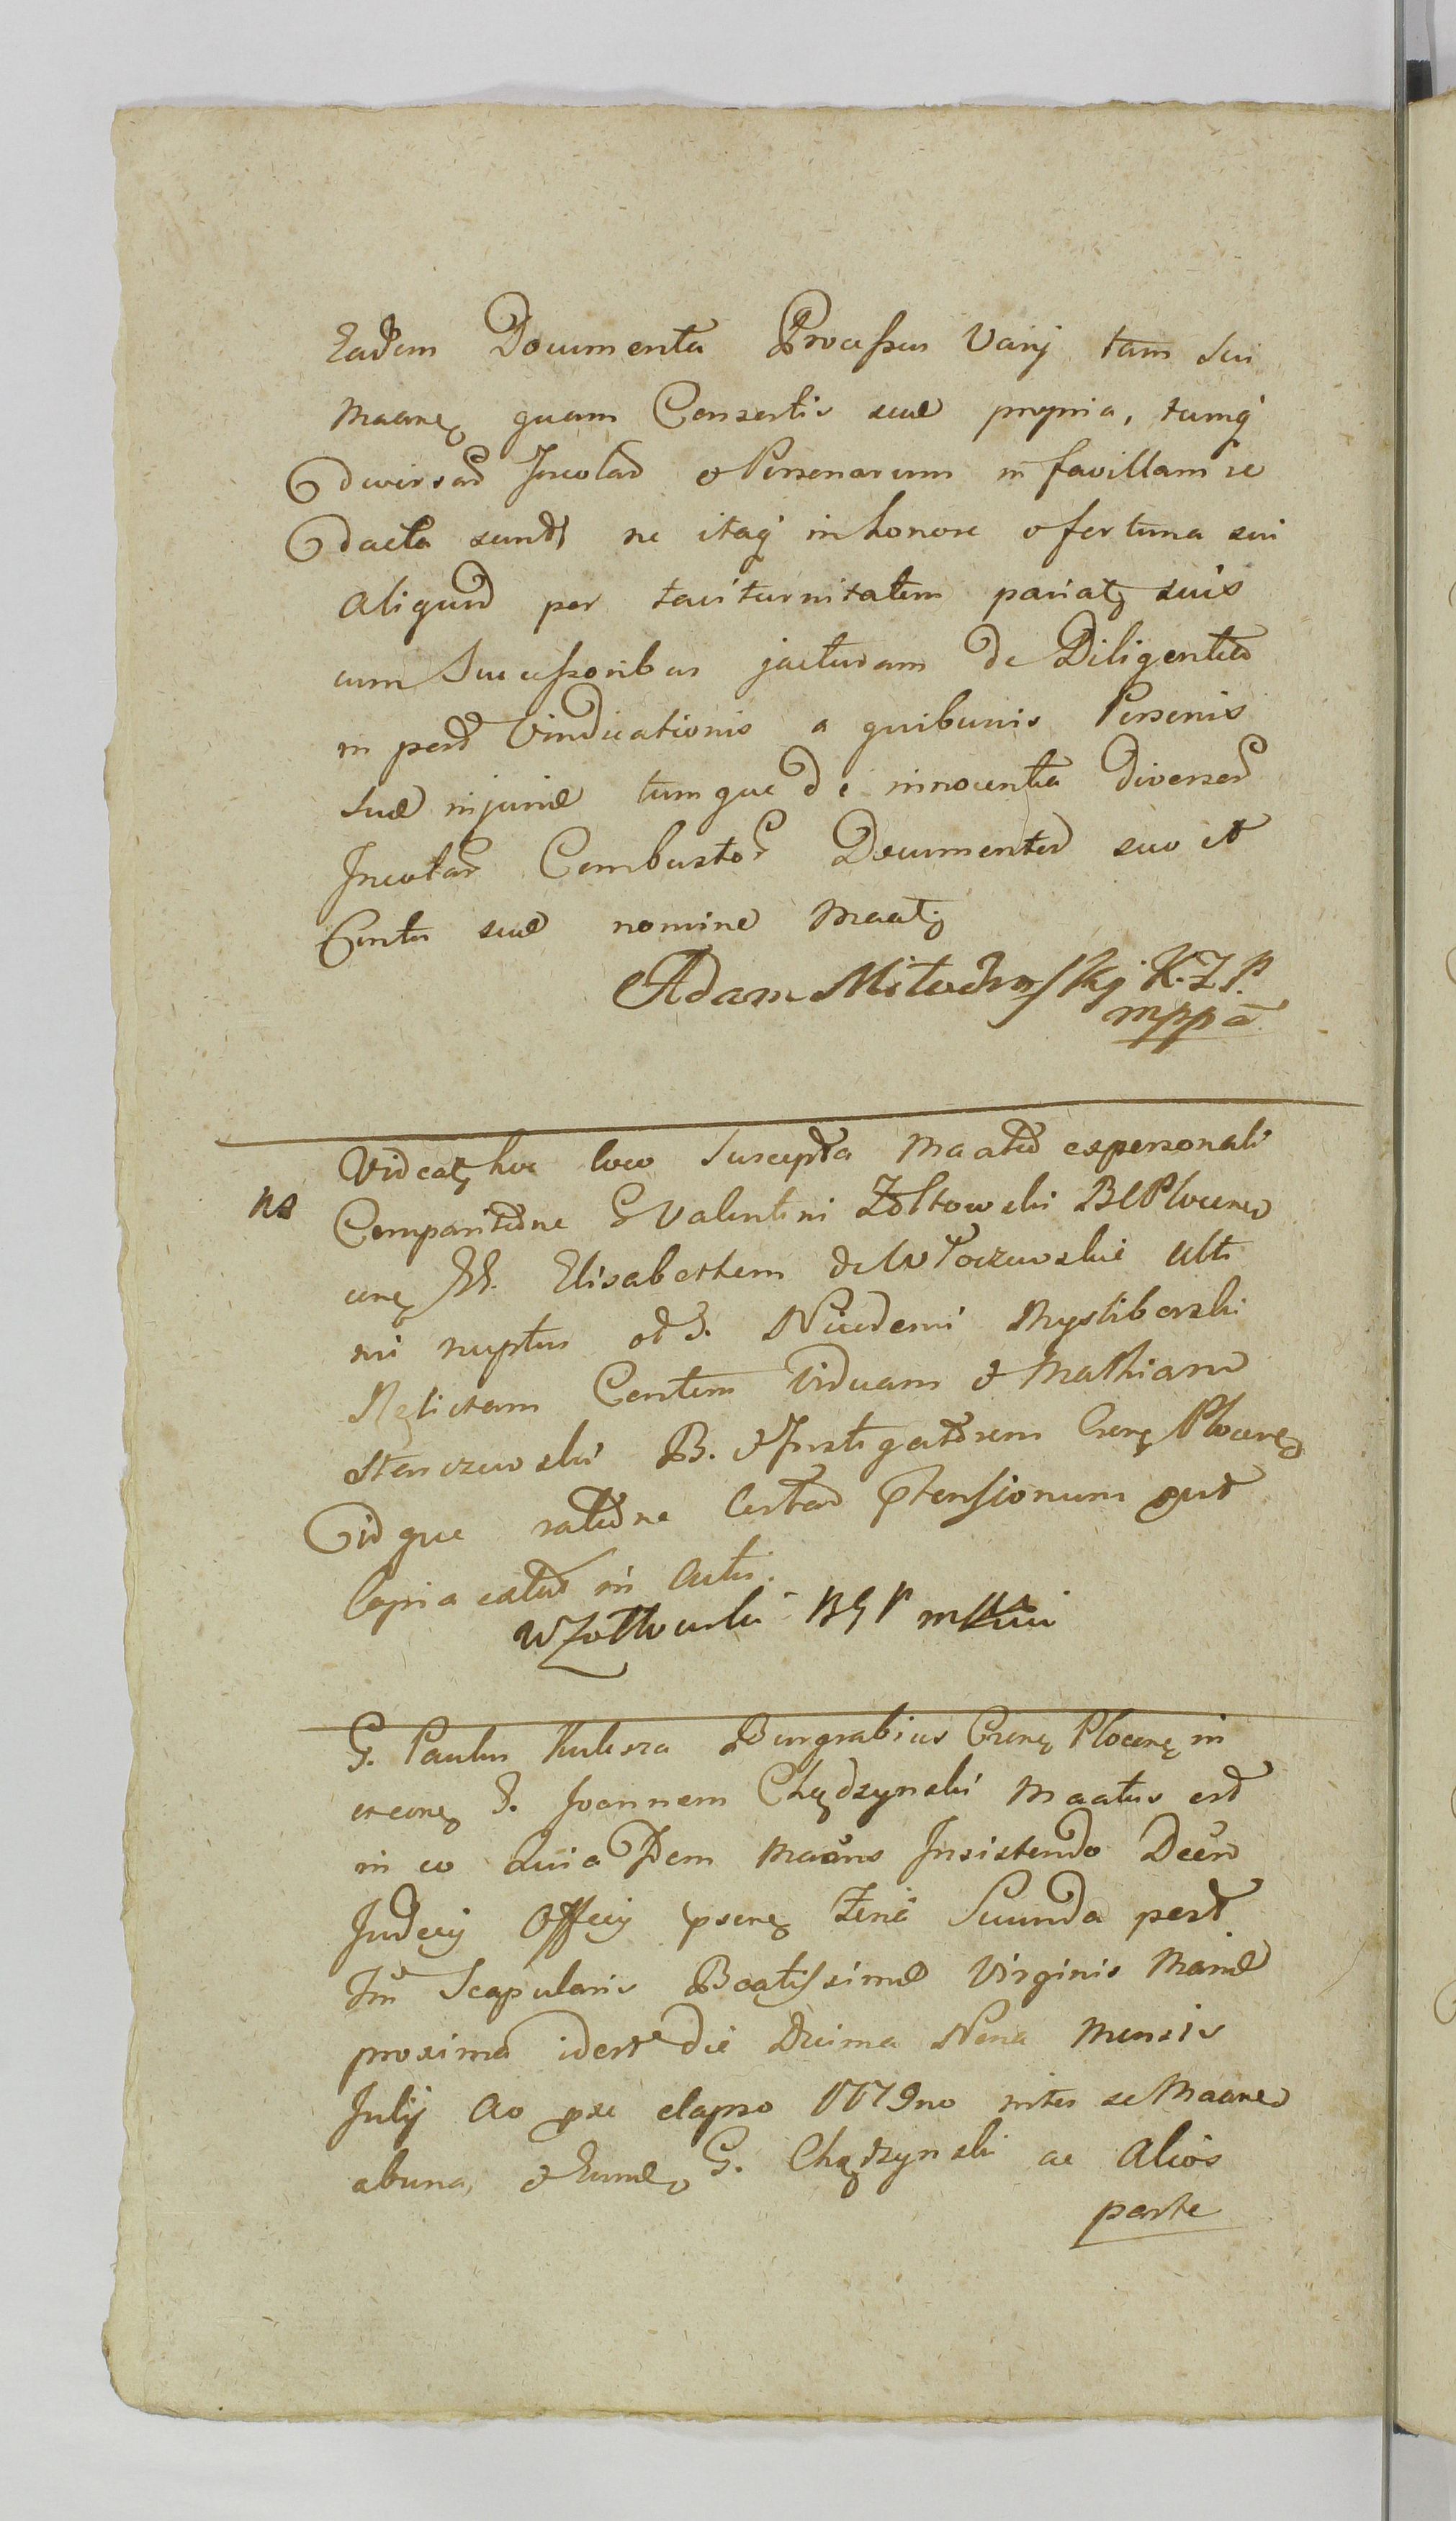 Eadem Documenta Processus Varij tam sui
Maanē quam Consortis suæ propria, tumq̃
diversar̃ Incolar̃ et Personarum in favillam re
dacta sunt, ne itaq̃ in honore et fortuna sui
aliquid per taciturnitatem pariatʒ suis
cum Successoribus jacturam de Diligentia
in per Vindicationis a quibusvis Personis
suæ injuriæ tumque de innocentia diversor̃
Incolar̃ Combustor̃ Documentor̃ suo et
Contis suæ nomine Maatʒ
Adam K.Z.P.
mppa
Videatʒ hoc loco Suscepta Maatio ex personali
NB
Comparitione G Valentini Zołtowski BCPlocen
cnē GG. Elisabethem de Włoczewskie ulti
mi nuptus et G. Nicodemi Mysliborski
Relictam Contem Viduam et Mathiam
Stenczewski B. et Instigatorem Crenē Plocenē
idque ratione Certar̃ prtensionum prt
Copia eatus in actis.
W Zołtowski BGP mppa
G. Paulus Kulesza Burgrabius Crenē Plocenē in
et cnē G. Joannem Chądzynski Maatus est
in eo quia Idem Maans Insistendo Decr̃
Judicij Officij psenē Feriā Secunda post
Fm̃ Scapularis Beatissimæ Virginis Mariæ
proxima idest die Decima Nona Mensis
Julij Ao pxe elapso 1779no inter se Maanē
ab una, et Eundē G. Chądzynski ac alios
parte